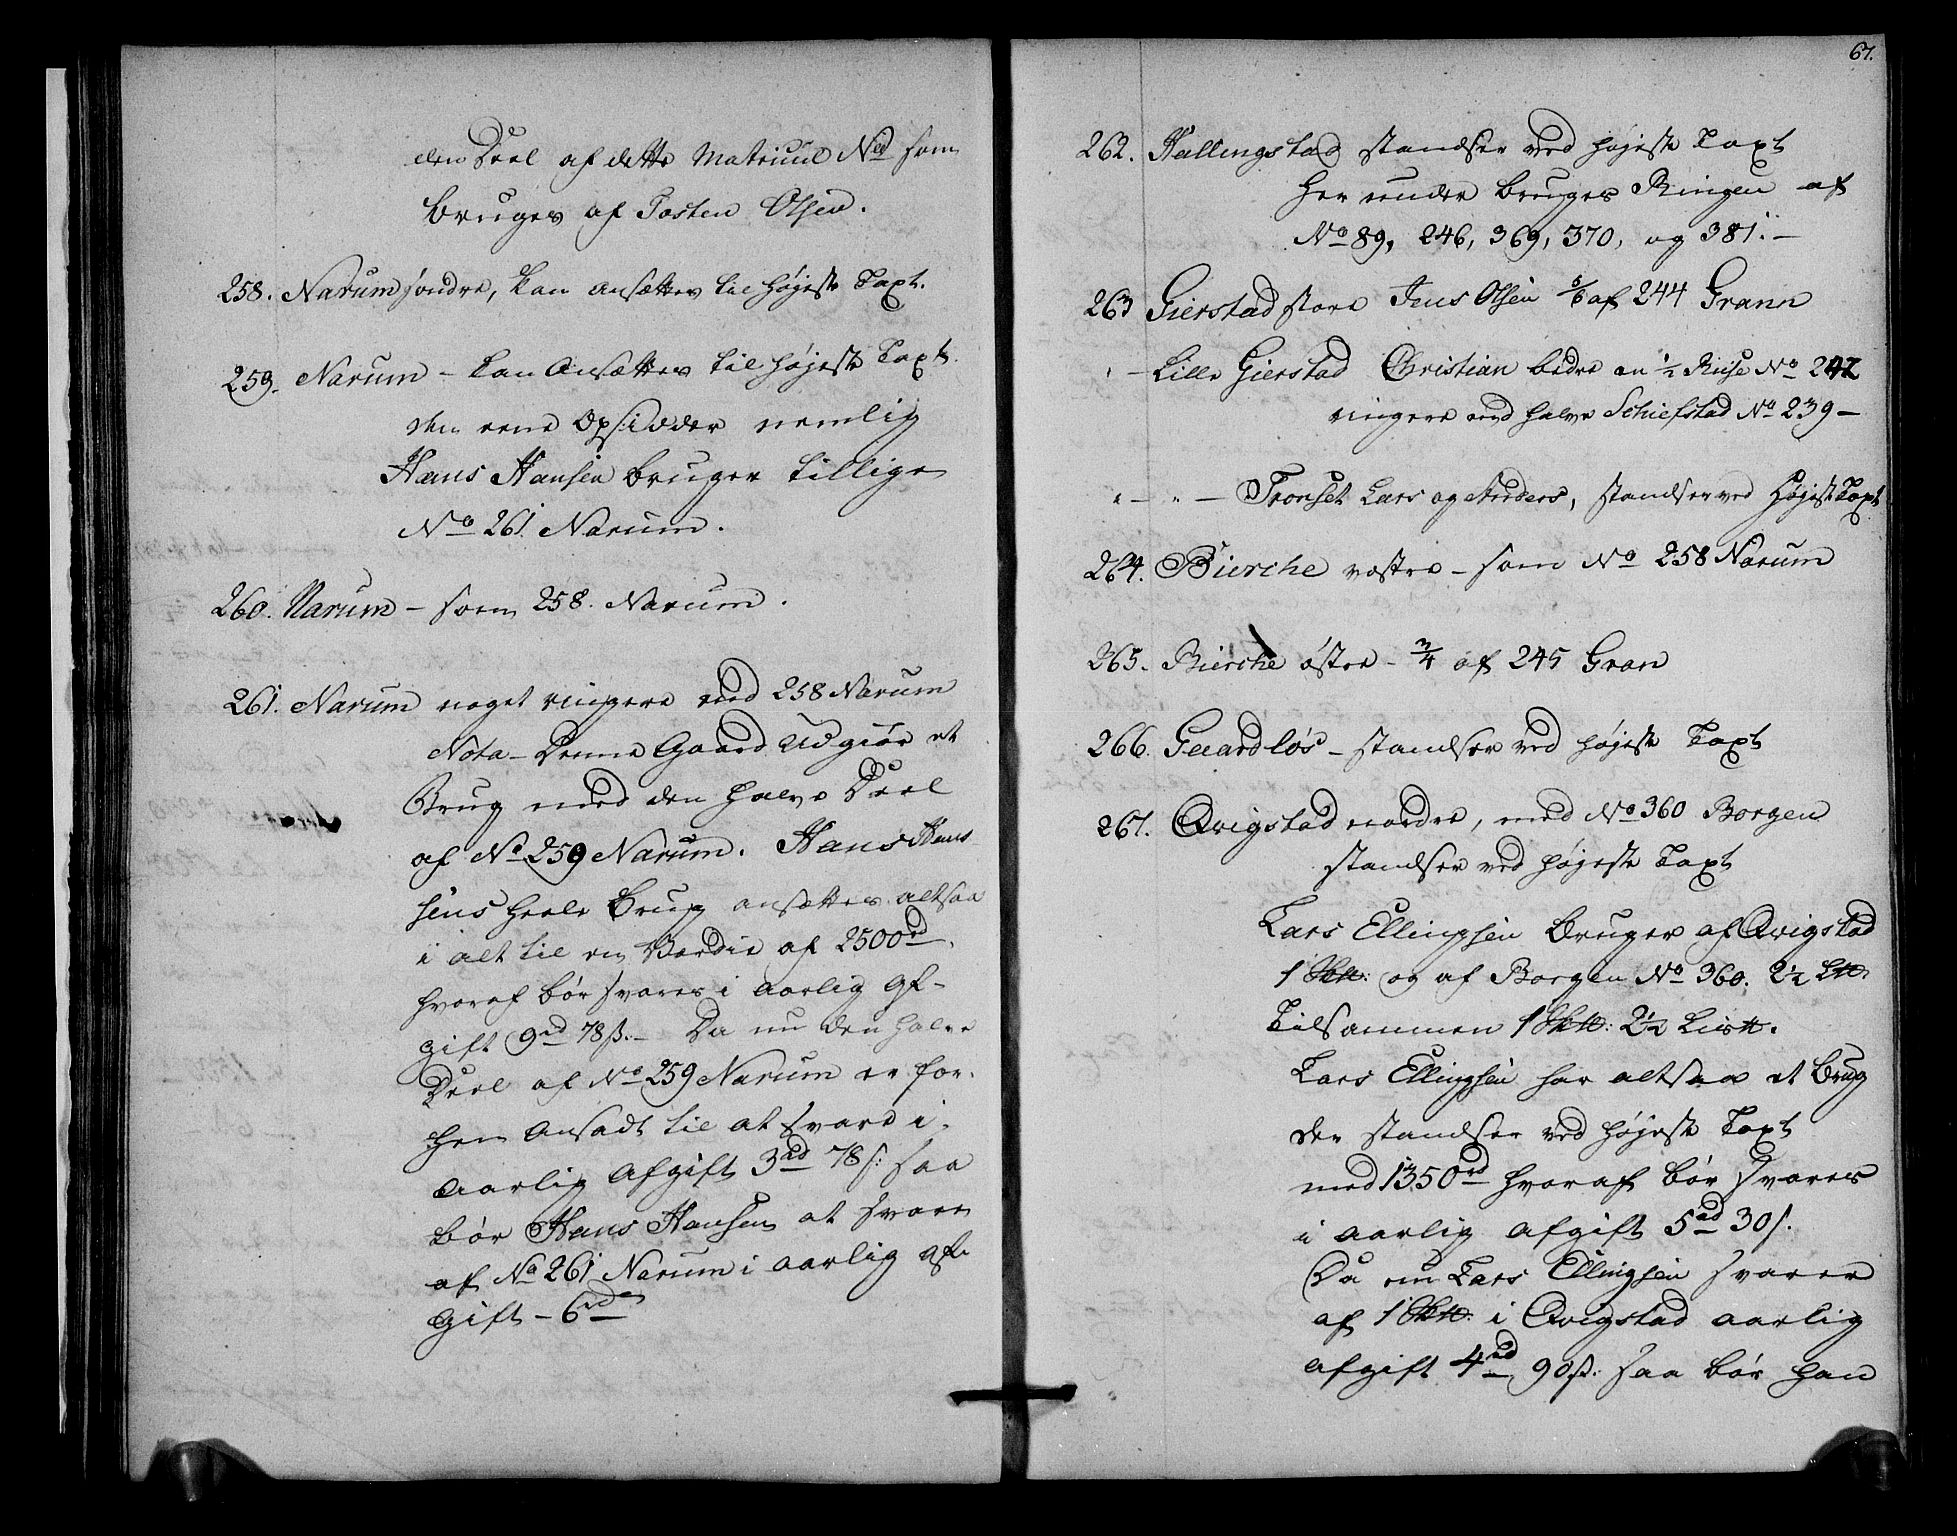 den Deel af dette Matricul No som
bruges af Tosten Olsen.
258. Narum søndre, kan ansættes til højeste Taxt.
259. Narum - kan Ansættes til højeste Taxt.
den eene Opsidder nemlig
Hans Hansen bruger tillige
No 261 Narum.
260. Narum - som 258. Narum.
261. Narum noget ringere end 258 Narum
Nota - Denne Gaard Udgiør et
Brug med den halve Deel
af No 259 Narum. Hans Han
sens heele Brug ansættes altsaa
i alt til en Værdie af 2500 rd.
hvoraf bør svares i aarlig Af-
gift 9rd 78 s. - Da nu den halve
Deel af No 259 Narum er for-
hen Ansadt til at svare i
aarlig Afgift 3rd 78 s: saa
bør Hans Hansen at svare
af No 261 Narum i aarlig Af-
gift - 6rd
67.
262. Hallingstad standser ved højeste Taxt
her under bruges Ringen af
No 89, 246, 369, 370, og 381. -
263 Gierstad store Jens Olsen 5/6 af 244 Grann
" - Lille Gierstad Christian bedre en 1/2 Ruse No 242
ringere end halve Schiefstad No 239 -
" - " - Tronset Lars og Anders, standser ved Højeste Taxt
264. Bierche vestre - som No 258 Narum
265. Bierche østre - 3/4 af 245 Gran
266. Guardløs - standser ved højeste Taxt
267. Qvigstad nordre, med No 360 Borgen
standser ved højeste Taxt
Lars Ellingsen bruger af Qvigstad
1 Sk℔: og af Borgen No 360. 2 1/2 L℔.
Tilsammen 1 Sk℔: 2 1/2 Lis℔.
Lars Ellingsen har altsaa et Brug
der standser ved højeste Taxt
med 1350 rd hvoraf bør svares
i aarlig afgift 5rd 30 s.
Da nu Lars Ellingsen svarer
af 1 Sk℔: i Qvigstad aarlig
afgift 4rd 90 s: saa bør han